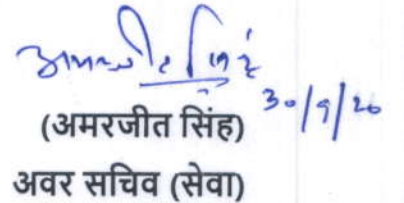 अमरजीत सिंह
30/9/20
(अमरजीत सिंह)
अवर सचिव (सेवा)